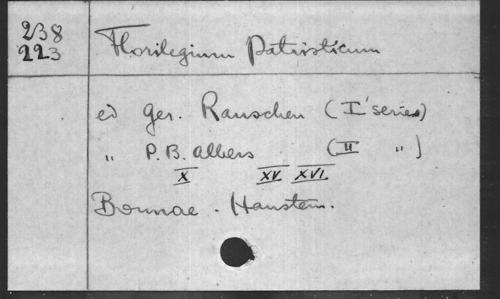 238
223
Florilegium Patristicum
ed Ger. Rauschen (I series)
" P. B. Albers (II ")
X XV XVI
Bonnae. Hanstein.